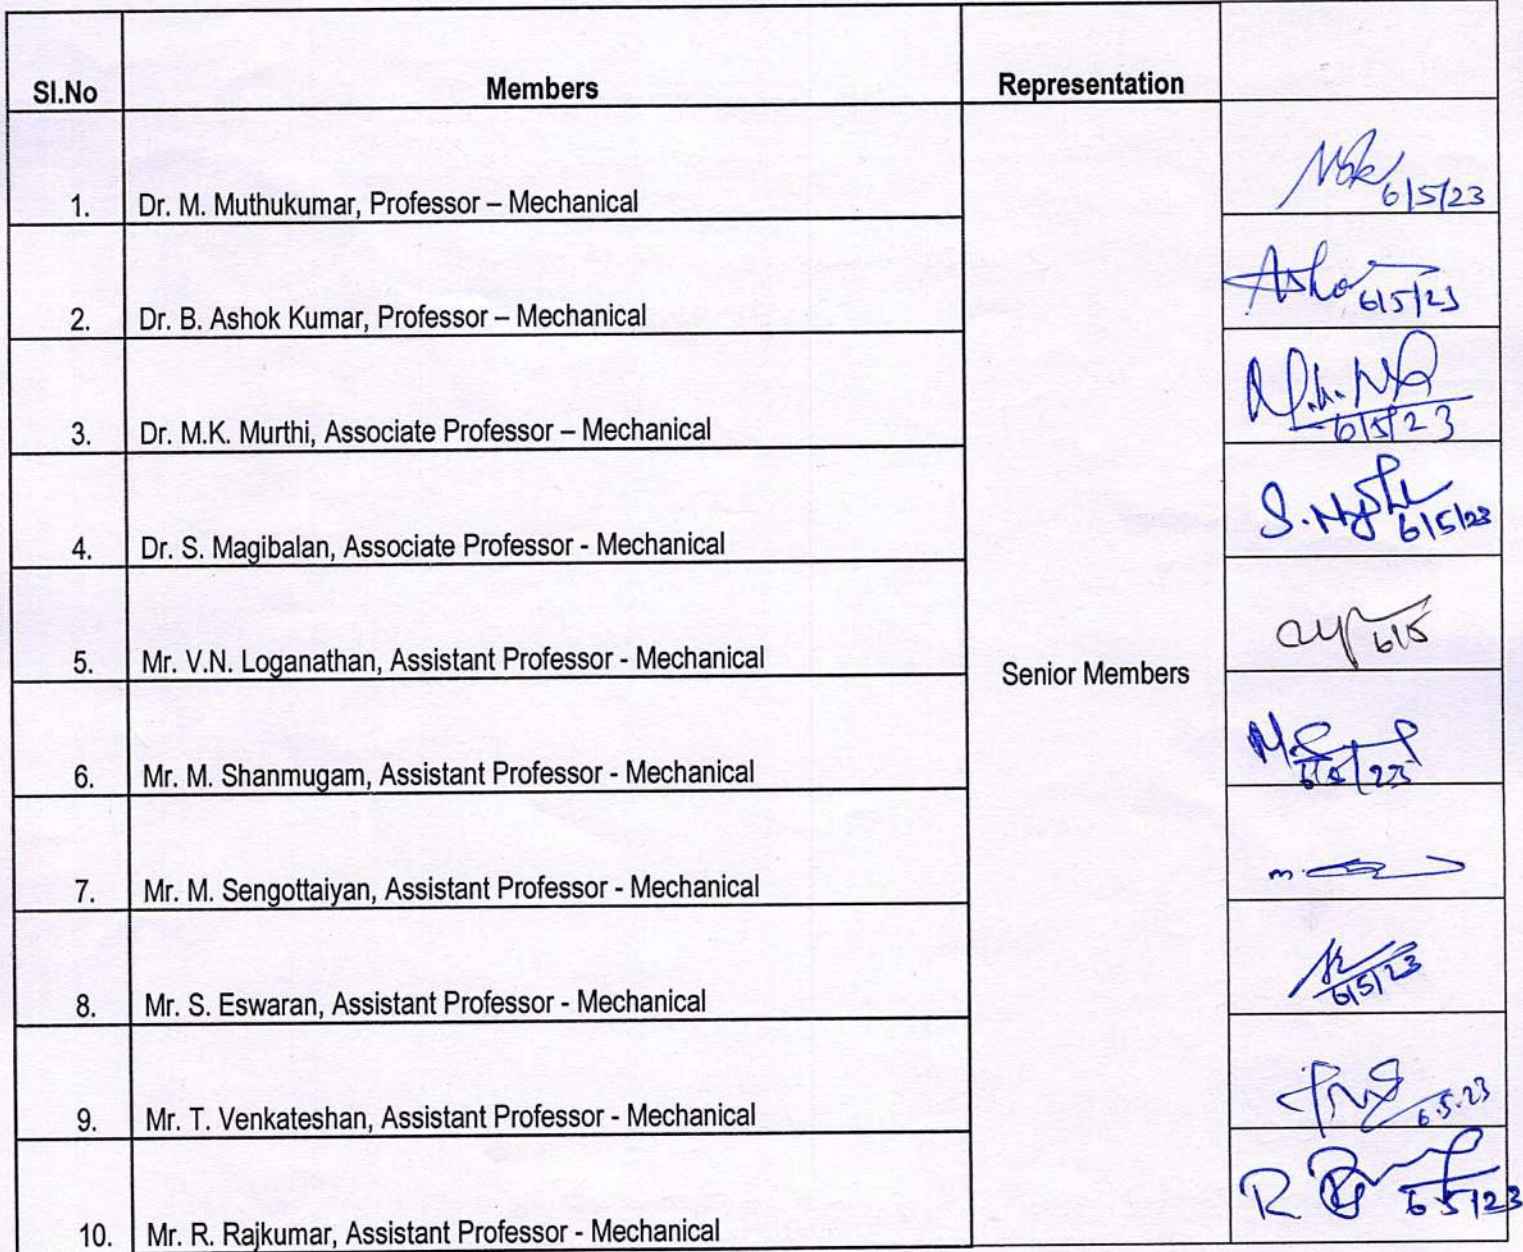 Sl.No Members Representation
1. Dr. M. Muthukumar, Professor – Mechanical
6/5/23
2. Dr. B. Ashok Kumar, Professor – Mechanical
6/5/23
3. Dr. M.K. Murthi, Associate Professor – Mechanical
6/5/23
4. Dr. S. Magibalan, Associate Professor - Mechanical
6/5/23
5. Mr. V.N. Loganathan, Assistant Professor - Mechanical
6/5
Senior Members
6. Mr. M. Shanmugam, Assistant Professor - Mechanical
6/5/23
7. Mr. M. Sengottaiyan, Assistant Professor - Mechanical
8. Mr. S. Eswaran, Assistant Professor - Mechanical
6/5/23
9. Mr. T. Venkateshan, Assistant Professor - Mechanical
6.5.23
10. Mr. R. Rajkumar, Assistant Professor - Mechanical
6/5/23